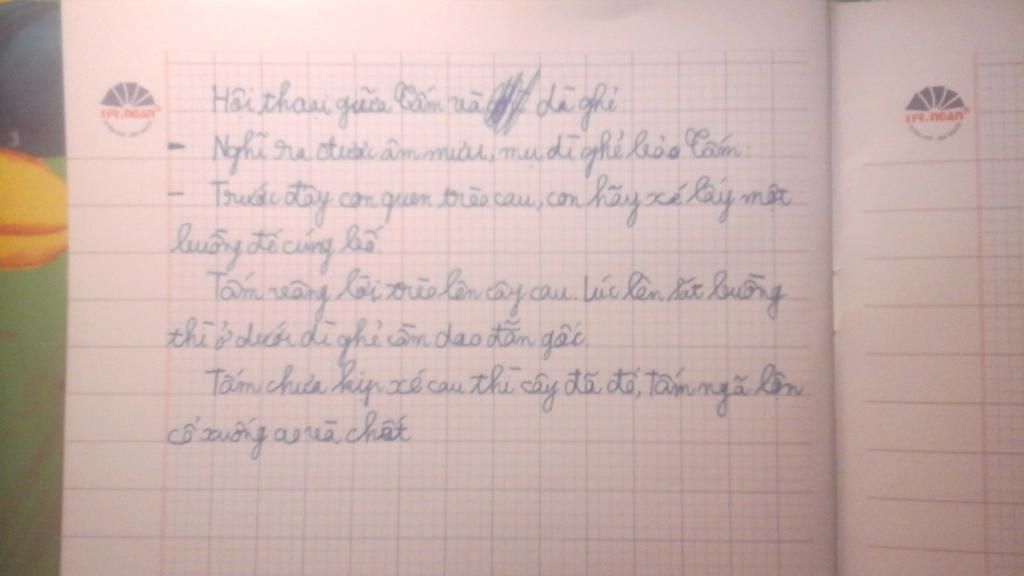 Hội thoại giữa Tấm và dì ghẻ:
- Nghĩ ra được âm mưu, mụ dì ghẻ bảo Tấm:
- Trước đây con quen trèo cau, con hãy xé lấy một
buồng để cúng bố.
Tấm vâng lời trèo lên cây cau. Lúc lên sát buồng
thì ở dưới dì ghẻ cầm dao đẵn gốc.
Tấm chưa kịp xé cau thì cây đã đổ, Tấm ngã lộn
cổ xuống ao và chết